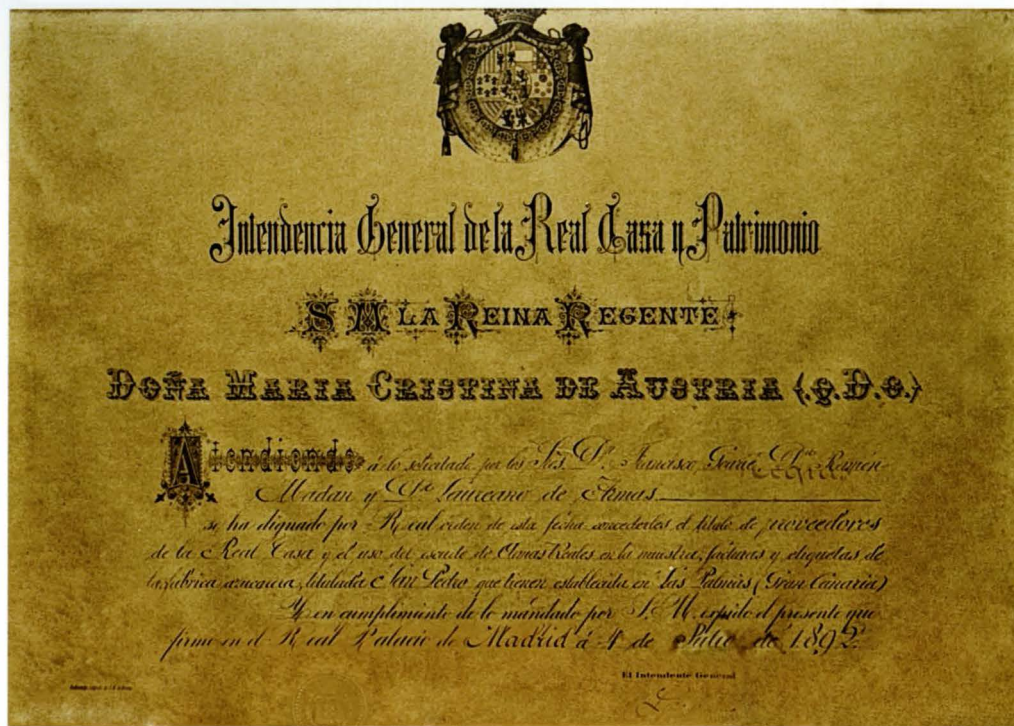 Intendencia General de la Real Casa y Patrimonio
S M LA REINA REGENTE
DOÑA MARIA CRISTINA DE AUSTRIA (q.D.g.)
Atendiendo á lo solicitado por los Sres. Dn. Francisco Gourié, Dn. Ramón
Madan y Dn. Laureano de Armas
se ha dignado por Real orden de esta fecha concederles el título de proveedores
de la Real Casa y el uso del escudo de Armas Reales en la muestra, facturas y etiquetas de
la fábrica azucarera, titulada San Pedro que tienen establecida en Las Palmas (Gran Canaria)
Y en cumplimiento de lo mandado por S. M. expido el presente que
firmo en el Real Palacio de Madrid á 4 de Julio de 1892
El Intendente General